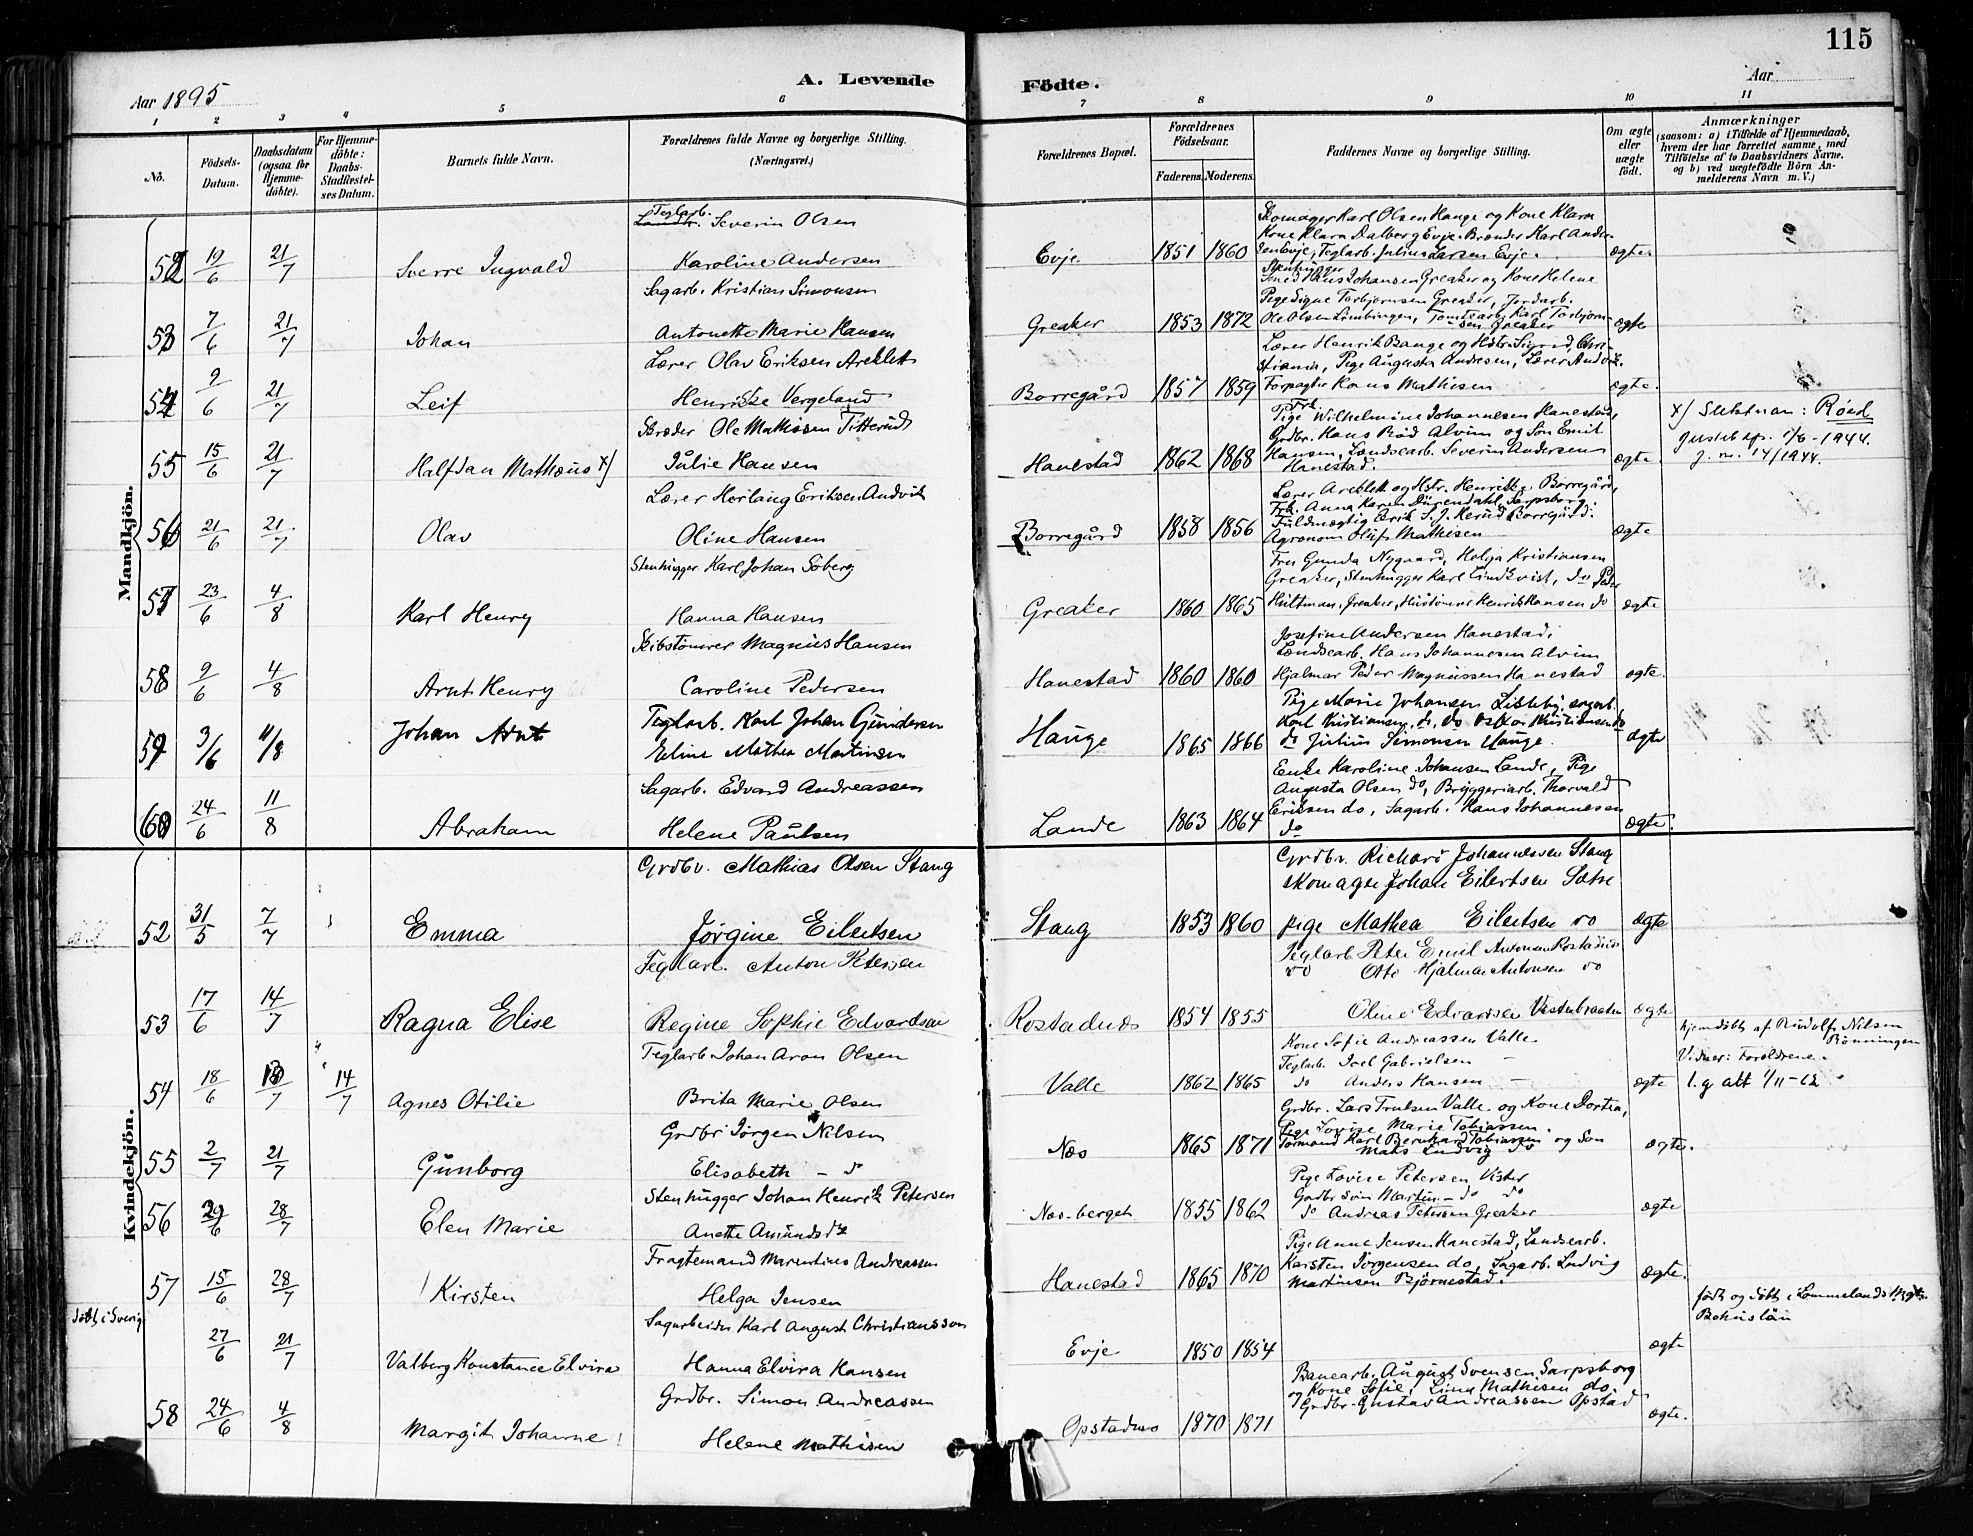 115
A. Levende Födte.
Aar 1895
Aar
1 2 3 4 5 6 7 8 9 10 11
No.
Födsels-Datum.
Daabsdatum (ogsaa for Hjemme-döbte).
For Hjemme-döbte: Daabs-Stadfæstel-ses Datum.
Barnets fulde Navn.
Forældrenes fulde Navne og borgerlige Stilling. (Næringsvei.)
Forældrenes Bopæl.
Forældrenes Födselsaar.
Faderens. Moderens.
Faddernes Navne og borgerlige Stilling.
Om ægte eller uægte födt.
Anmærkninger
(saasom: a) i Tilfælde af Hjemmedaab,
hvem der har forrettet samme, med
Tilföielse af to Daabsvidners Navne.
og b) ved uægtefödte Börn An-
melderens Navn m. V.)
Mandkjön.
Teglarb. Severin Olsen
52 19/6 21/7 Sverre Ingvald Karoline Andersen Evje 1851 1860 ægte
Skomager Karl Olsen Hauge og Kone Klara
Kone Klara Dalborg Evje. Brønder Karl Ander-
sen Evje, Teglarb. Julius Larsen Evje.
Sagarb. Kristian Simonsen
53 7/6 21/7 Johan Antonette Marie Hansen Greaker 1853 1872 ægte
Stenhugger
Smed Hans Johansen Greaker og Kone Helene
Pige Signe Torbjørnsen Greaker, Jordarb.
Ole Olsen Limbingen, Tomtearb. Karl Torbjørn-
sen Greaker
Lærer Olav Eriksen Areklett
54 9/6 21/7 Leif Henrikke Vergeland Borregård 1857 1859 ægte.
Lærer Henrik Bange og Hstr. Sigrid, Chri-
stiania, Pige Augusta Andresen, Lærer Andvik.
Forpagter Hans Mathisen
Skræder Ole Mathisen Titterud
55 15/6 21/7 Halfdan Mathæus x) Julie Hansen Hanestad 1862 1868 ægte.
Frk.
Pige Wilhelmine Johannesen Hanestad,
Grdbr. Hans Rød Alvim og Søn Emil
Hansen, Landsearb. Severin Andersen
Hanestad.
x) Slektnavn: Röed
1/6-1944.
j. nr. 14/1944.
Lærer Herlaug Eriksen Andvik
56 21/6 21/7 Olav Oline Hansen Borregård 1858 1856 ægte
Lærer Areklett og Hstr. Henrikke Borregård,
Frk. Anna Karen Dürendahl, Sarpsborg
Fuldmægtig Erik S. J. Kerud Borregård.
Agronom Oluf Mathisen
Stenhugger Karl Johan Soberg
57 23/6 4/8 Karl Henry Hanna Hansen Greaker 1860 1865 ægte
Fru Gunda Nygaard, Helga Kristiansen
Greaker, Stenhugger Karl Lindkvist, do Peter
Hultman, Greaker, Henrik Hansen do
Skibstømrer Magnus Hansen
58 9/6 4/8 Arnt Henry Caroline Pedersen Hanestad 1860 1860 ægte.
Josefine Andersen Hanestad,
Landsearb. Hans Johannesen Alvim
Hjalmar Peder Magnussen Hanestad
Teglarb. Karl Johan Gundersen
59 3/6 11/8 Johan Arnt Eline Mathea Martinsen Hauge 1865 1866 ægte
Pige Marie Johansen Lisleby, sagarb.
Karl Kristiansen do, do Oskar Kristiansen do
do Julius Simonsen Hauge.
Sagarb. Edvard Andreassen
60 24/6 11/8 Abraham Helene Paulsen Lande 1863 1864 ægte.
Enke Karoline Johansen Lande, Pige
Augusta Olsen do, Bryggeriarb. Thorvald
Eriksen do, Sagarb. Hans Johannesen
do
Kvindekjön.
Grdbr. Mathias Olsen Stang
52 31/5 7/7 Emma Jørgine Eilertsen Stang 1853 1860 ægte
Grdbr. Richard Johannessen Stang
skomager Johan Eilertsen Sætre
pige Mathea Eilertsen do
Teglarb. Anton Petersen
53 17/6 14/7 Ragna Elise Regine Sophie Edvardsen Rostadnæs 1854 1855 ægte
Teglarb Peter Emil Antonsen Rostadnæs
do Otto Hjalmar Antonsen do
Oline Edvardsen Vestenbraaten
Teglarb. Johan Aron Olsen
54 18/6 /7 14/7 Agnes Otilie Brita Marie Olsen Valle 1862 1865 ægte
Kone Sofie Andreassen Valle
Teglarb. Joel Gabrielsen —
do Anders Hansen —
hjemdøbt af Rudolf Nilsen
Rønningen
Vidner: Forældrene.
l. g att 1/11-62
Grdbr Jørgen Nilsen
55 2/7 21/7 Gunborg Elisabeth — do Næs 1865 1871 ægte.
Grdbr. Lars Trulsen Valle og Kone Dortea,
Pige Lovise Marie Tobiassen.
Tømmand Karl Bernhard Tobiassen og Søn
Mats Ludvig do
Stenhugger Johan Henrik Petersen
56 29/6 28/7 Elen Marie Anette Amundsdt Næs-berget 1855 1862 ægte
Pige Lovise Petersen Vister
Grdbr søn Martin — do do
do Andreas Petersen Greaker
Fragtemand Marentius Andreassen
57 15/6 28/7 Kirsten Helga Jensen Hanestad 1865 1870 ægte.
Pige Anne Jensen Hanestad, Landsearb.
Karsten Jørgensen do, Sagarb. Ludvig
Martinsen Bjørnestad.
døbt i Sverig
Sagarbeider Karl August Christiansson
27/6 21/7 Valborg Konstance Elvira Hanna Elvira Hansen Evje 1850 1854 ægte
født og døbt i Lommelands
Bohuslän
Grdbr. Simon Andreassen
58 24/6 4/8 Margit Johanne Helene Mathisen Opstadnæs 1870 1871 ægte.
Banearb. August Svensen Sarpsborg
og Kone Sofie, Lina Mathisen do.
Grdbr. Gustav Andreassen Opstad